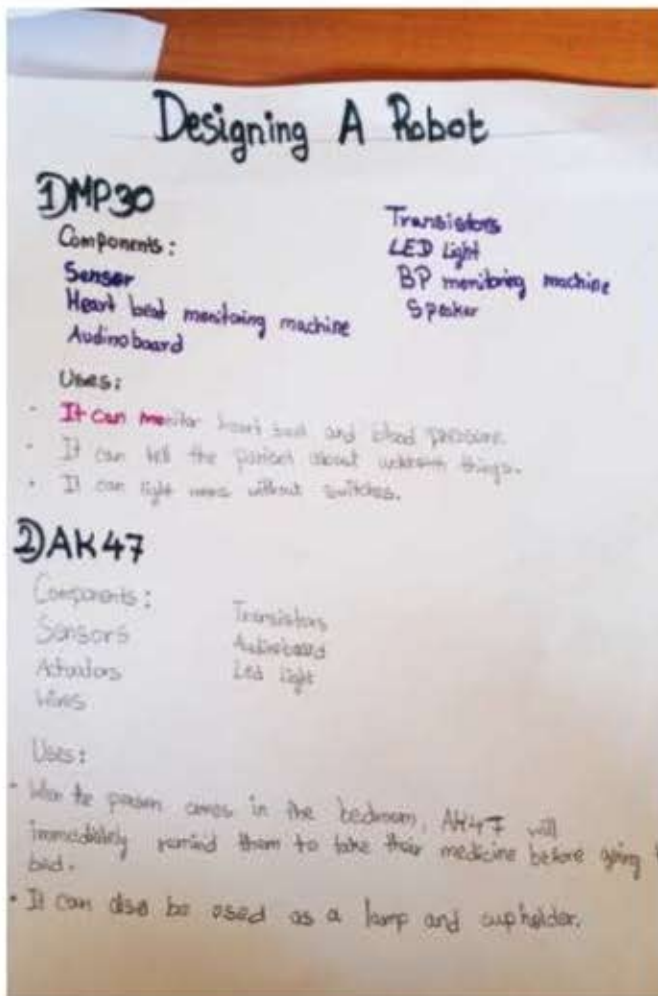 Designing A Robot
1) DMP30
Components:
Sensor
Heart beat monitoring machine
Audinoboard
Transistors
LED Light
BP monitoring machine
Speaker
Uses:
- It can monitor heart beat and blood pressure.
- It can tell the person about unknown things.
- It can light without switches.
2) AK47
Components:
Sensors
Actuators
Wires
Transistors
Audinoboard
Led light
Uses:
- When the person comes in the bedroom, AK47 will
immediately remind them to take their medicine before going
bed.
- It can also be used as a lamp and cupholder.